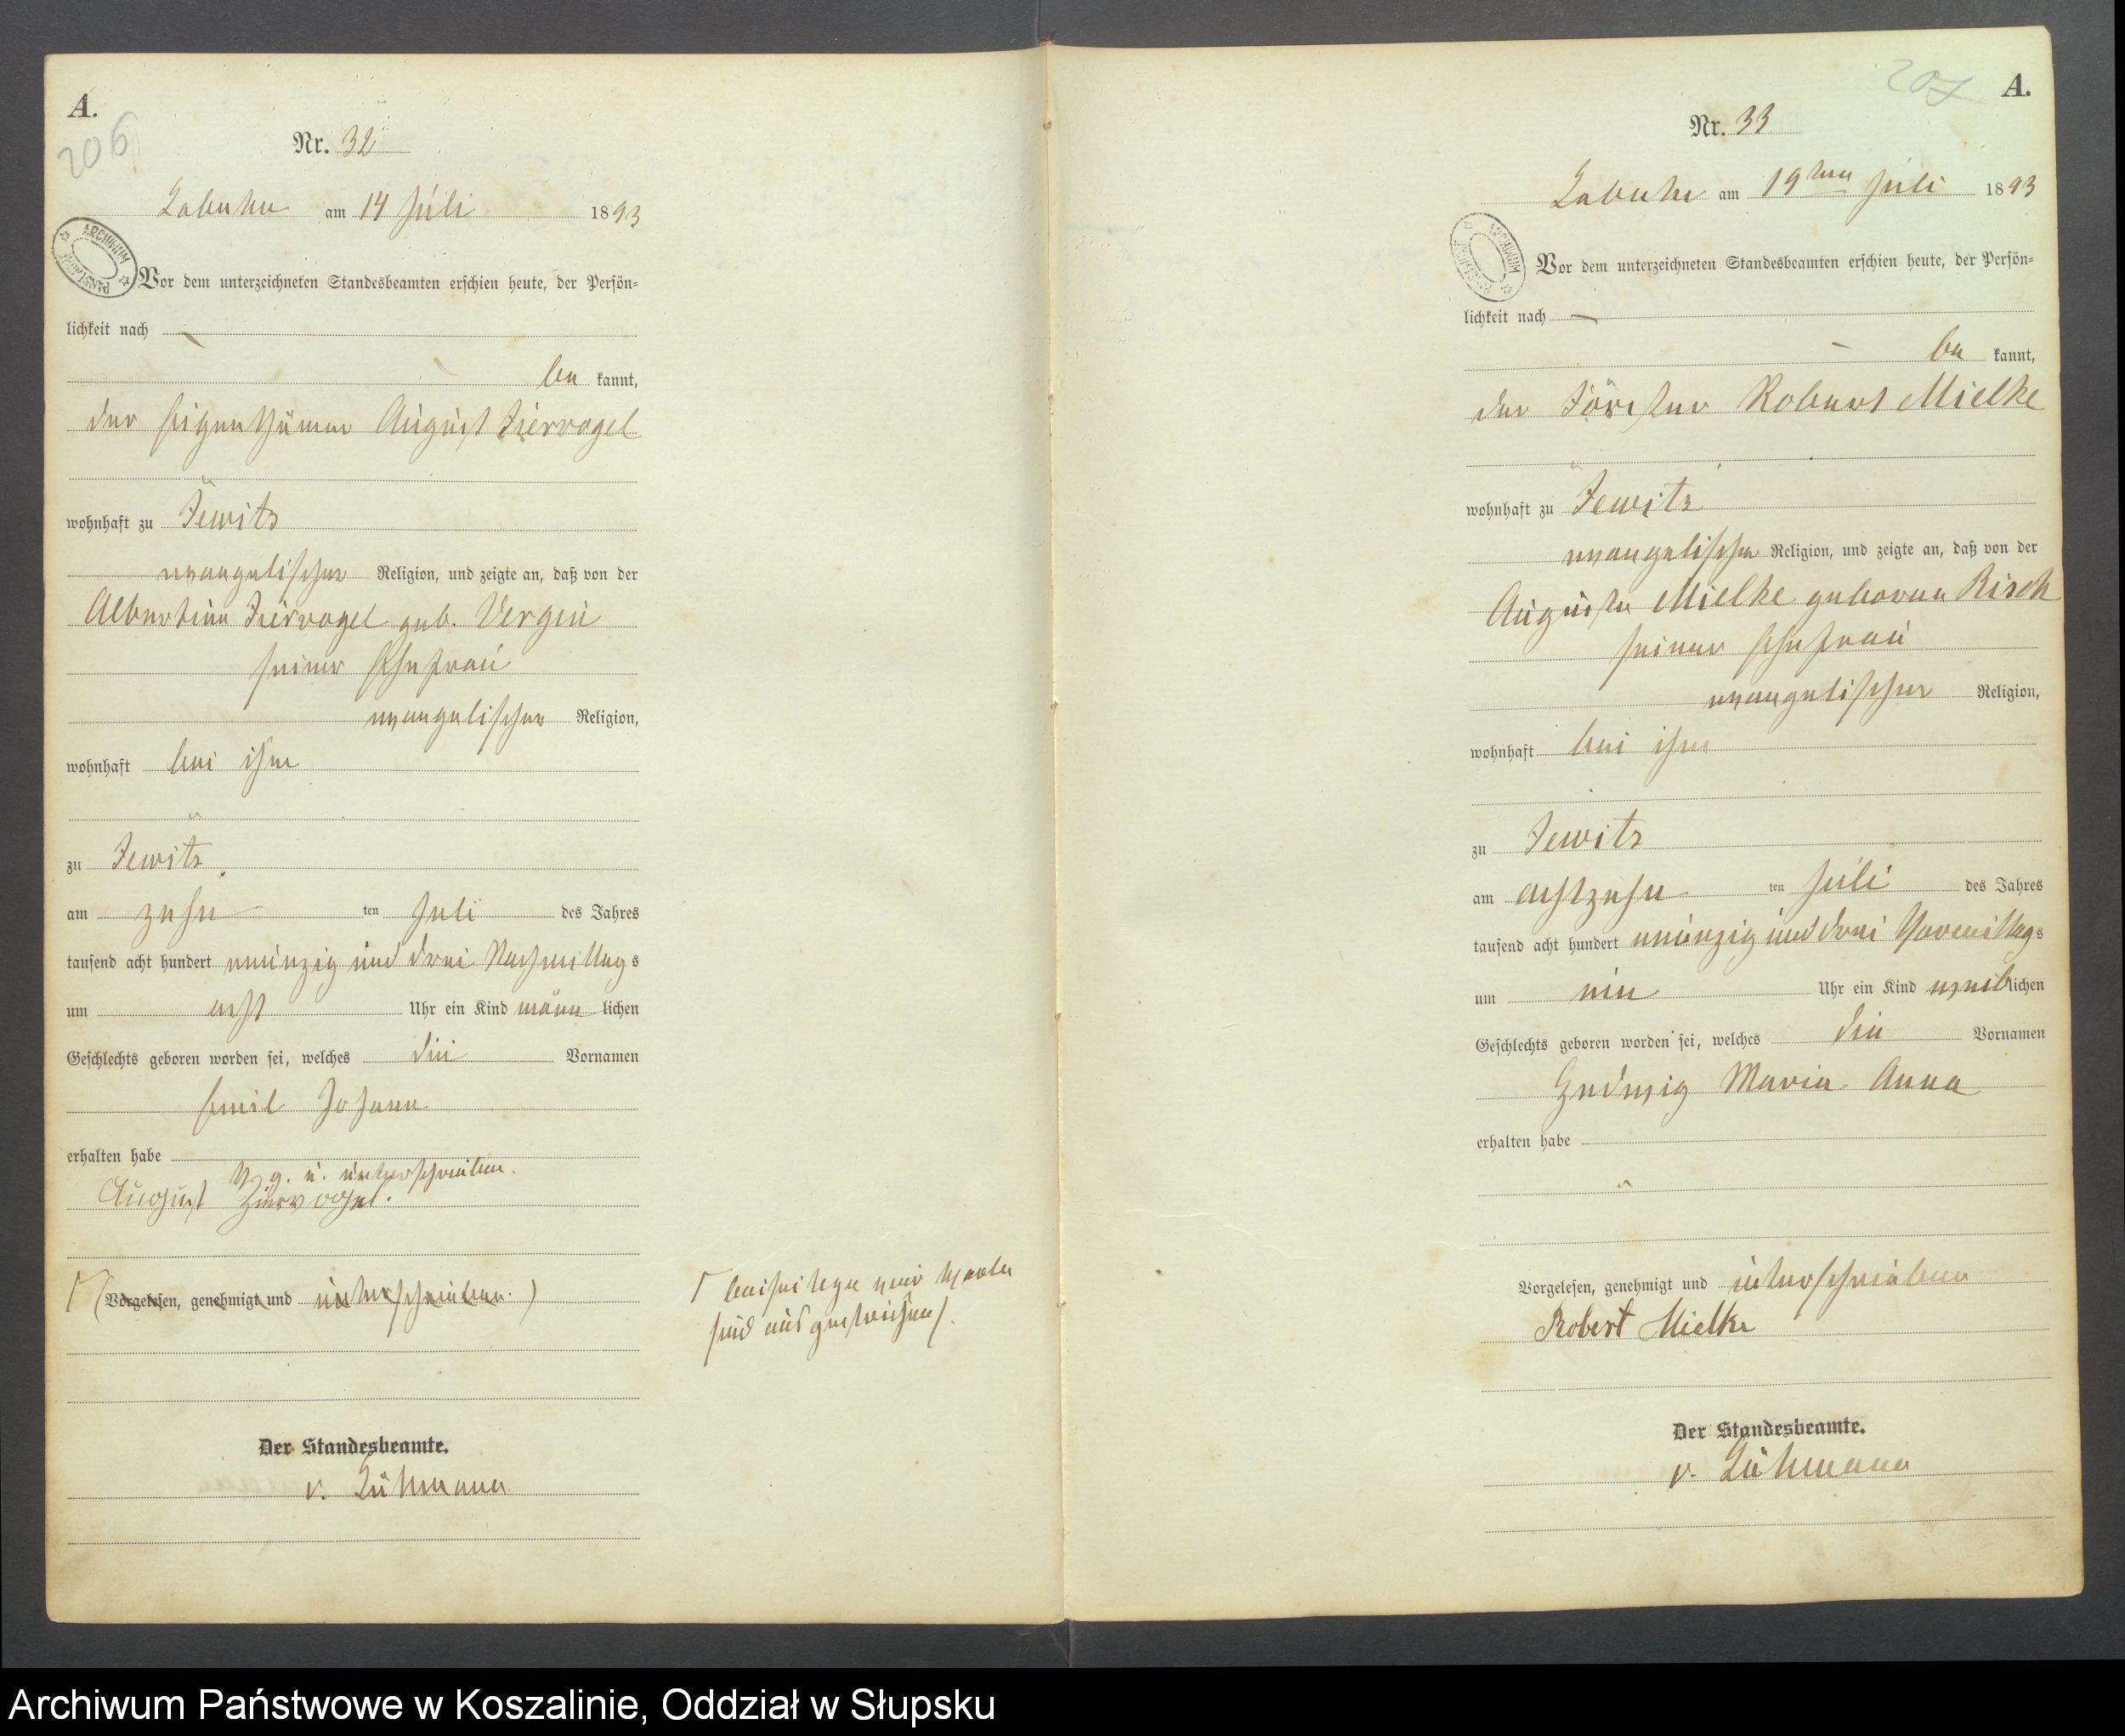 A.
206
Nr. 32
Labuhn am 14 Juli 1893
ARCHIWUM PAŃSTWOWE
Vor dem unterzeichneten Standesbeamten erschien heute, der Persön-
lichkeit nach
be kannt,
der Eigenthümer August Ziervogel
wohnhaft zu Zewitz
evangelischer Religion, und zeigte an, daß von der
Albertine Ziervogel geb. Vergin
seiner Ehefrau
evangelischer Religion,
wohnhaft bei ihm
zu Zewitz
am zehn ten Juli des Jahres
tausend acht hundert neunzig und drei Nachmittags
um acht Uhr ein Kind männ lichen
Geschlechts geboren worden sei, welches die Vornamen
Emil Johann
erhalten habe
V. g. u. unterschrieben.
August Ziervogel.
(Vorgelesen, genehmigt und unterschrieben.)
sind ausgestrichen
Der Standesbeamte.
v. Lühmann
207
A.
Nr. 33
Labuhn am 19ten Juli 1893
ARCHIWUM PAŃSTWOWE
Vor dem unterzeichneten Standesbeamten erschien heute, der Persön-
lichkeit nach
be kannt,
der Förster Robert Mielke
wohnhaft zu Zewitz
evangelischer Religion, und zeigte an, daß von der
Auguste Mielke geborene Risch
seiner Ehefrau
evangelischer Religion,
wohnhaft bei ihm
zu Zewitz
am achtzehn ten Juli des Jahres
tausend acht hundert neunzig und drei Vormittags
um ein Uhr ein Kind weiblichen
Geschlechts geboren worden sei, welches die Vornamen
Hedwig Maria Anna
erhalten habe
Vorgelesen, genehmigt und unterschrieben
Robert Mielke
Der Standesbeamte.
v. Lühmann
Archiwum Państwowe w Koszalinie, Oddział w Słupsku